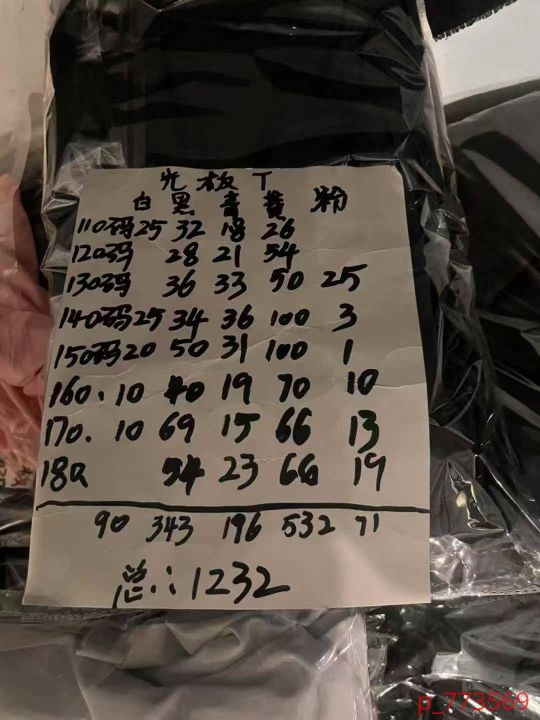 光板T
白 黑 青 黄 粉
110码 25 32 18 26
120码 28 21 54
130码 36 33 50 25
140码 25 34 36 100 3
150码 20 50 31 100 1
160. 10 40 19 70 10
170. 10 69 15 66 13
180 54 23 66 19
90 343 196 532 71
总:1232
p_773569